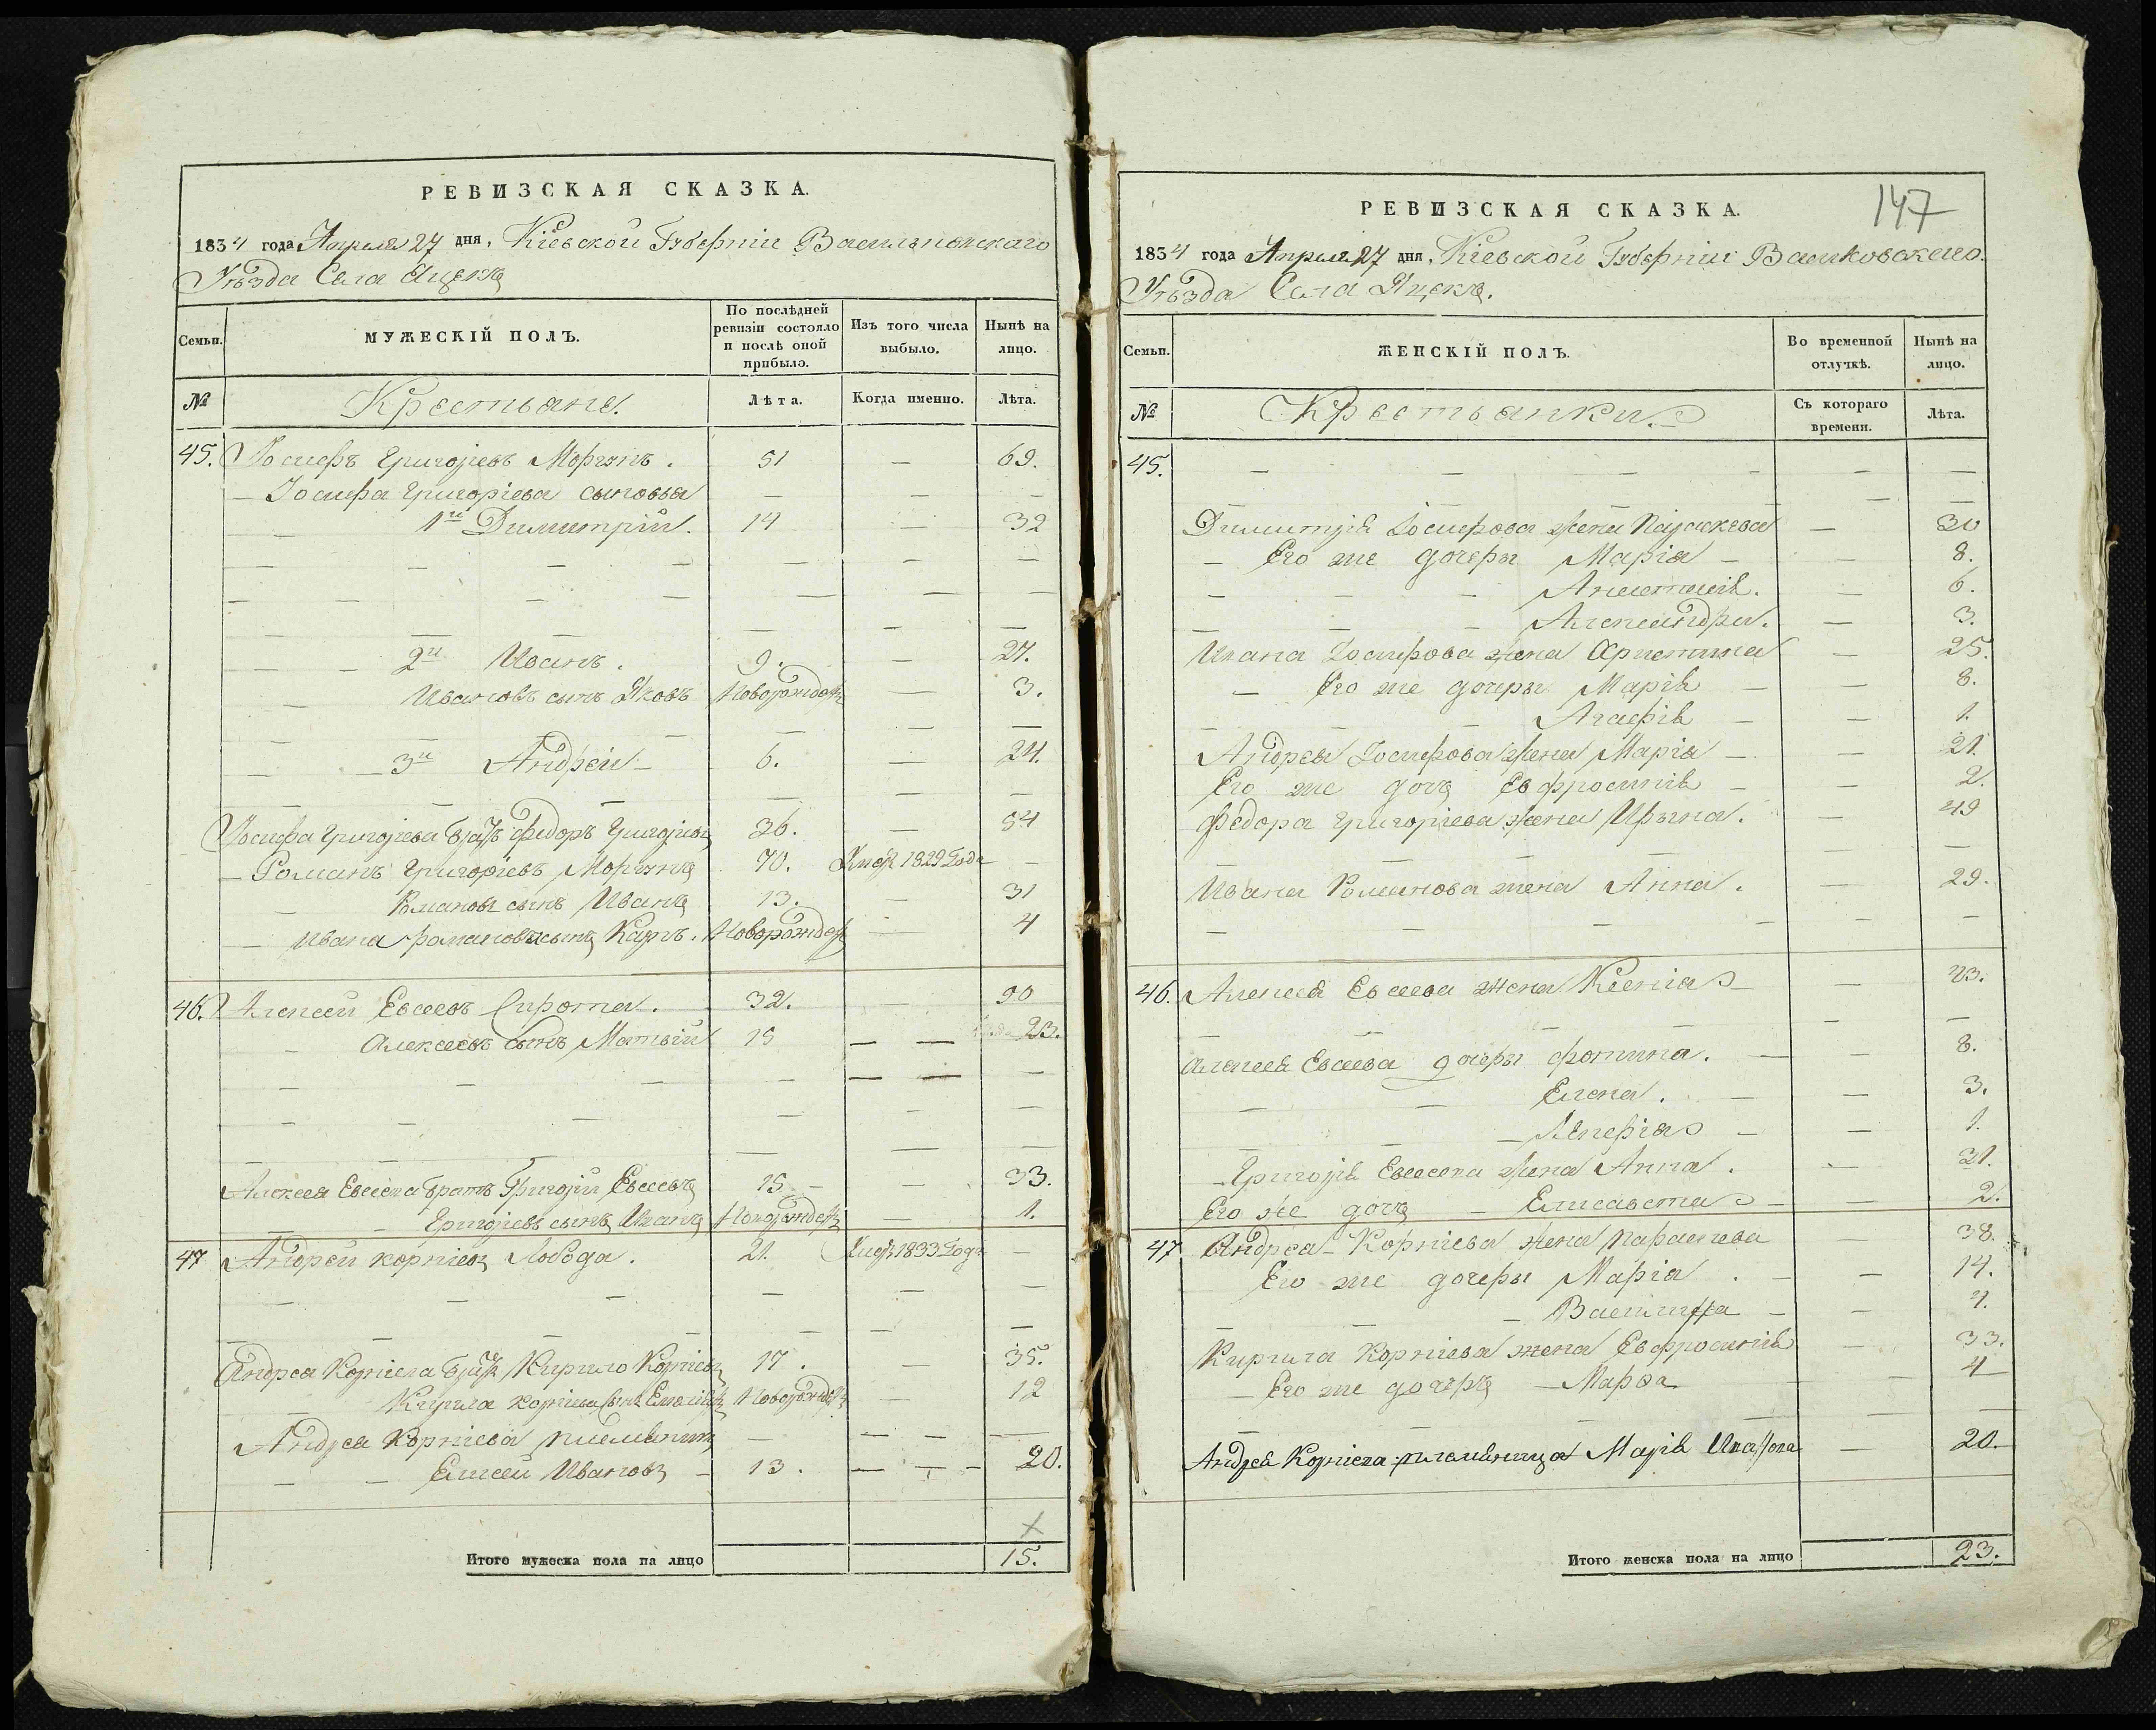 РЕВИЗСКАЯ СКАЗКА.
1834 года Апреля 27 дня, Кіевской Губерніи Васильковскаго
Уѣзда Села Яцекъ
Семьи.
МУЖЕСКІЙ ПОЛЪ.
По послѣдней ревизіи состояло и послѣ оной прибыло.
Изъ того числа выбыло.
Нынѣ на лицо.
№
Крестьяне.
Лѣта.
Когда именно.
Лѣта.
45. Іосифъ Григоріевъ Моргунъ. 51 — 69.
— Іосифа Григоріева сыновья — — —
— 1й Димитрій. 14 — 32
— — 2й Иванъ. 9. — 27.
— Ивановъ сынъ Яковъ Новорожден — 3.
— — 3й Андрей — 6. — 24.
Іосифа Григоріева братъ Федоръ Григоріевъ 36. — 54
— Романъ Григоріевъ Моргунъ 70. Умеръ 1829 Года —
— Романовъ сынъ Иванъ 13. — 31
— Ивана Романова сынъ Карпъ. Новорожден — 4
46. Алексей Евсеевъ Сирота. 32. — 50
— Алексеевъ сынъ Матвій 15 — — 23.
Алексея Евсеева братъ Григорій Евсеевъ 15 — — 33.
— — Григоріевъ сынъ Иванъ Новорожден — 1.
47 Андрей Корніевъ Лобода. 21. Умеръ 1833 Года —
Андрея Корніева братъ Кирило Корніевъ 17. — 35.
Кирила Корніева сынъ Новорожден — 12
Андрея Корніева племянникъ — — — —
— — Елисей Ивановъ — 13. — — — 20.
Итого мужеска пола на лицо 15.
147
РЕВИЗСКАЯ СКАЗКА.
1834 года Апреля 27 дня, Кіевской Губерніи Васильковскаго
Уѣзда Села Яцекъ.
Семьи.
ЖЕНСКІЙ ПОЛЪ.
Во временной отлучкѣ.
Нынѣ на лицо.
№
Крестьянки.
Съ котораго времени.
Лѣта.
45. — — — — — —
Димитрія Іосифова жена Параскева — 30
— Его же дочери Марія — — 8.
— — — Анастасія. — 6.
— — — Александра. — 3.
Ивана Іосифова жена Христина — 25.
— Его же дочери Марія — — 8.
— — Агафія — — 1.
Андрея Іосифова жена Марія — — 21.
Его же дочь Евфросинія — — 2.
Федора Григоріева жена Ирына. — 49
Ивана Романова жена Анна. — 29.
46. Алексея Евсеева жена Ксенія — — 43.
Алексея Евсеева дочери Фотина. — — 8.
— — Елена. — — 3.
— — — — 1.
— Григорія Евсеева жена Анна. — 31.
Его же дочь — Елисавета — — 2.
47. Андрея Корніева жена Параскева — 38.
Его же дочери Марія. — — 14.
— — — Василиса — — 4.
Кирила Корніева жена Евфросинія — 33.
— Его же дочеръ — Марфа — — 4
Андрея Корніева племяница Марія Иванова — 20.
Итого женска пола на лицо 23.